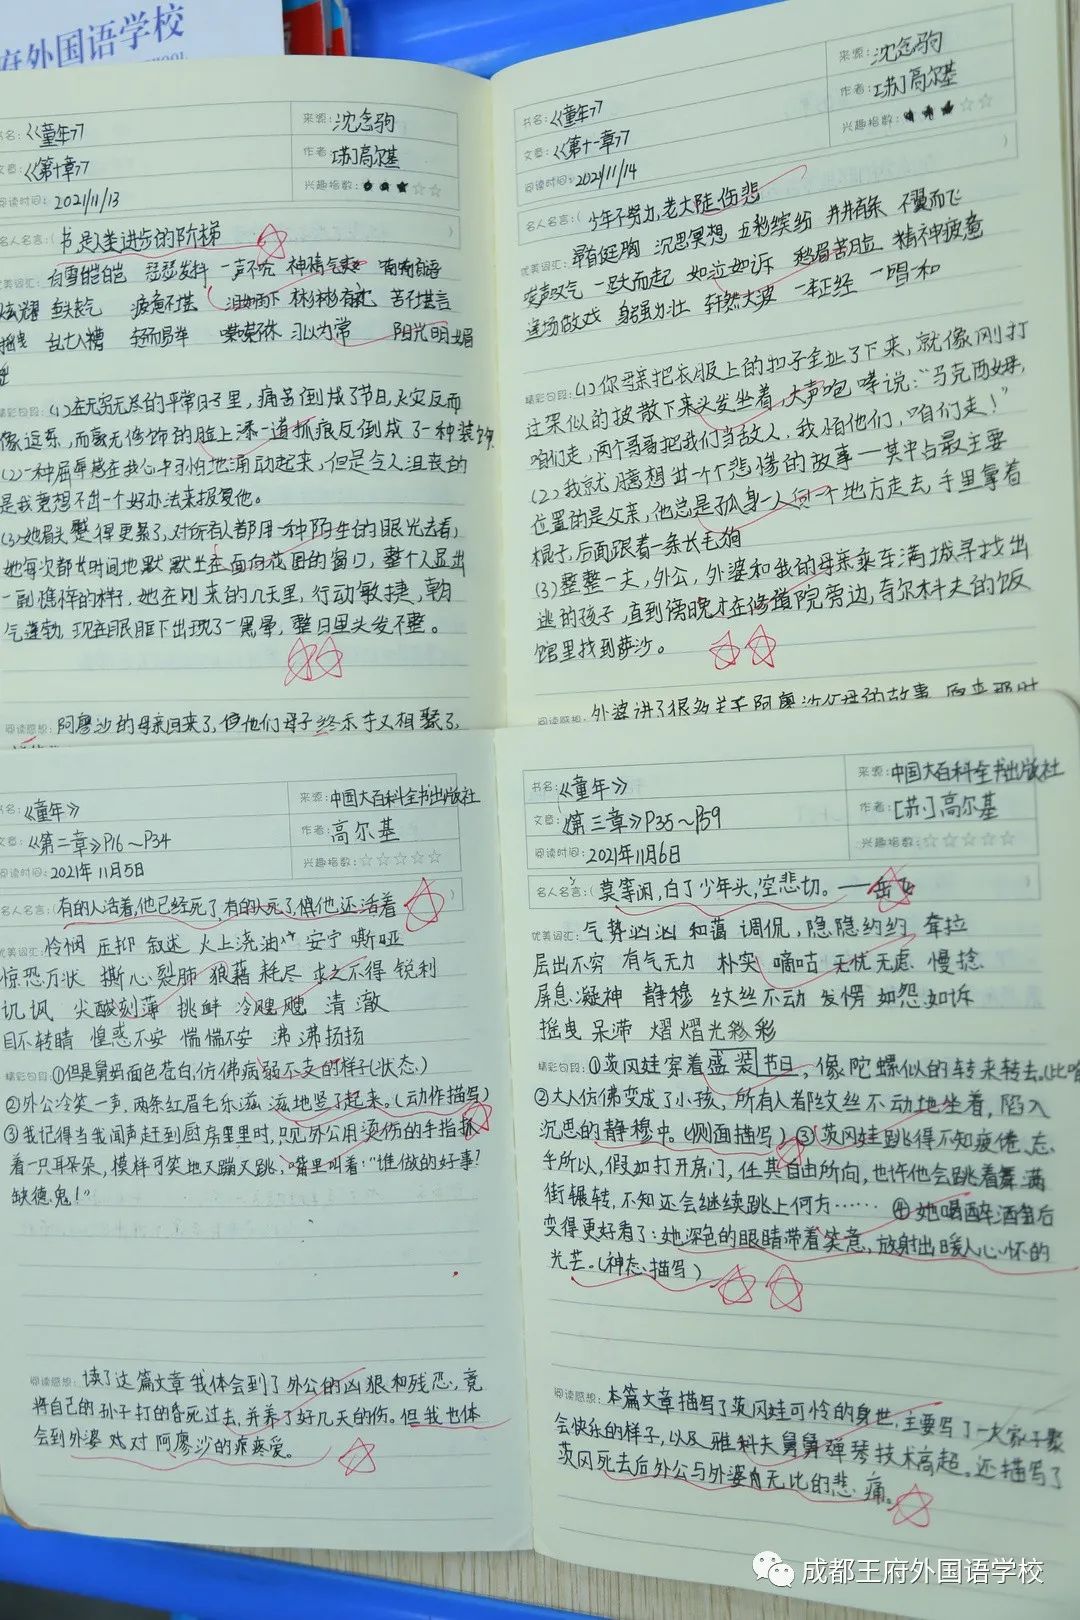 府外国语学校
书名:《童年》
来源:沈念驹
文章:《第十章》
作者:[苏]高尔基
阅读时间:2021/11/13
兴趣指数:★★★☆☆
名人名言:(书是人类进步的阶梯
优美词汇:白雪皑皑 瑟瑟发抖 一声不吭 神清气爽
炫耀 垂头丧气 疲惫不堪 泪如雨下 彬彬有礼 苦不堪言
摇曳 乱七八糟 轻而易举 喋喋不休 习以为常 阳光明媚
精彩句段:(1)在无穷无尽的平常日子里，痛苦倒成了节日，火灾反而
像逗乐，而毫无修饰的脸上添一道抓痕反倒成了一种装饰
(2)一种屈辱感在我心中可怕地涌动起来，但是令人沮丧的
是我竟想不出一个好办法来报复他。
(3)她眉头蹙得更紧了，对所有人都用一种陌生的眼光去看，
她每次都长时间地默默坐在面向花园的窗口，整个人显出
一副憔悴的样子，她在刚来的几天里，行动敏捷，朝
气蓬勃，现在眼眶下出现了一黑晕，整日里头发不整。
阅读感想:阿廖沙的母亲回来了，但他们母子终于又相聚了，
书名:《童年》
来源:沈念驹
文章:《第十一章》
作者:[苏]高尔基
阅读时间:2021/11/14
兴趣指数:★★★☆☆
名人名言:(少年不努力,老大徒伤悲
优美词汇:昂首挺胸 沉思冥想 五彩缤纷 井井有条 不翼而飞
唉声叹气 一跃而起 如泣如诉 愁眉苦脸 精神疲惫
逢场做戏 身强力壮 轩然大波 一本正经 一唱一和
精彩句段:(1)你母亲把衣服上的扣子全扯了下来，就像刚打
过架似的披散下来头发坐着，大声咆哮说：“马克西姆，
咱们走，两个哥哥把我们当敌人，我怕他们，咱们走！”
(2)我就臆想出一个个悲惨的故事一其中占最主要
位置的是父亲，他总是孤身一人向一个地方走去，手里拿着
棍子，后面跟着一条长毛狗
(3)整整一天，外公，外婆和我的母亲乘车满城寻找出
逃的孩子，直到傍晚才在修道院旁边，夺尔科夫的饭
馆里找到萨沙。
阅读感想:外婆讲了很多关于阿廖沙父母的故事，原来那时
书名:《童年》
来源:中国大百科全书出版社
文章:《第二章》P16～P34
作者:高尔基
阅读时间:2021年11月5日
兴趣指数:☆☆☆☆☆
名人名言:(有的人活着,他已经死了,有的人死了,但他还活着)
优美词汇:怜悯 压抑 叙述 火上浇油 安宁 嘶哑
惊恐万状 撕心裂肺 狼藉 耗尽 求之不得 锐利
讥讽 尖酸刻薄 挑衅 冷飕飕 清澈
目不转睛 惶惑不安 惴惴不安 沸沸扬扬
精彩句段:①但是舅妈面色苍白，仿佛病弱不支的样子(状态)
②外公冷笑一声，两条红眉毛乐滋滋地竖了起来。(动作描写)
③我记得当我闻声赶到厨房里里时，只见外公用烫伤的手指抓
着一只耳朵朵，模样可笑地又蹦又跳，嘴里叫着：“谁做的好事？
缺德鬼！”
阅读感想:读了这篇文章我体会到了外公的凶狠和残忍，竟
将自己的孙子打的昏死过去，并养了好几天的伤。但我也体
会到外婆对阿廖沙的疼爱。
书名:《童年》
来源:中国大百科全书出版社
文章:《第三章》P35～P59
作者:[苏]高尔基
阅读时间:2021年11月6日
兴趣指数:☆☆☆☆☆
名人名言:(莫等闲,白了少年头,空悲切。——岳飞
优美词汇:气势汹汹 和蔼 调侃, 隐隐约约 耷拉
层出不穷 有气无力 朴实 嘀咕 无忧无虑 慢捻
屏息凝神 静穆 纹丝不动 发愣 如怨如诉
摇曳 呆滞 熠熠光彩
精彩句段:①茨冈娃穿着盛装节日，像陀螺似的转来转去。(比喻
②大人仿佛变成了小孩，所有人都纹丝不动地坐着，陷入
沉思的静穆中。(侧面描写)③茨冈娃跳得不知疲倦、忘
乎所以，假如打开房门，任其自由所向，也许他会跳着舞满
街辗转，不知还会继续跳上何方…… ④她喝醉酒盅后
变得更好看了：她深色的眼睛带着笑意，放射出暖人心怀的
光芒。(神态描写)
阅读感想:本篇文章描写了茨冈娃可怜的身世，主要写了一大家子聚
会快乐的样子，以及雅科夫舅舅弹琴技术高超。还描写了
茨冈死去后外公与外婆无比的悲痛。
成都王府外国语学校